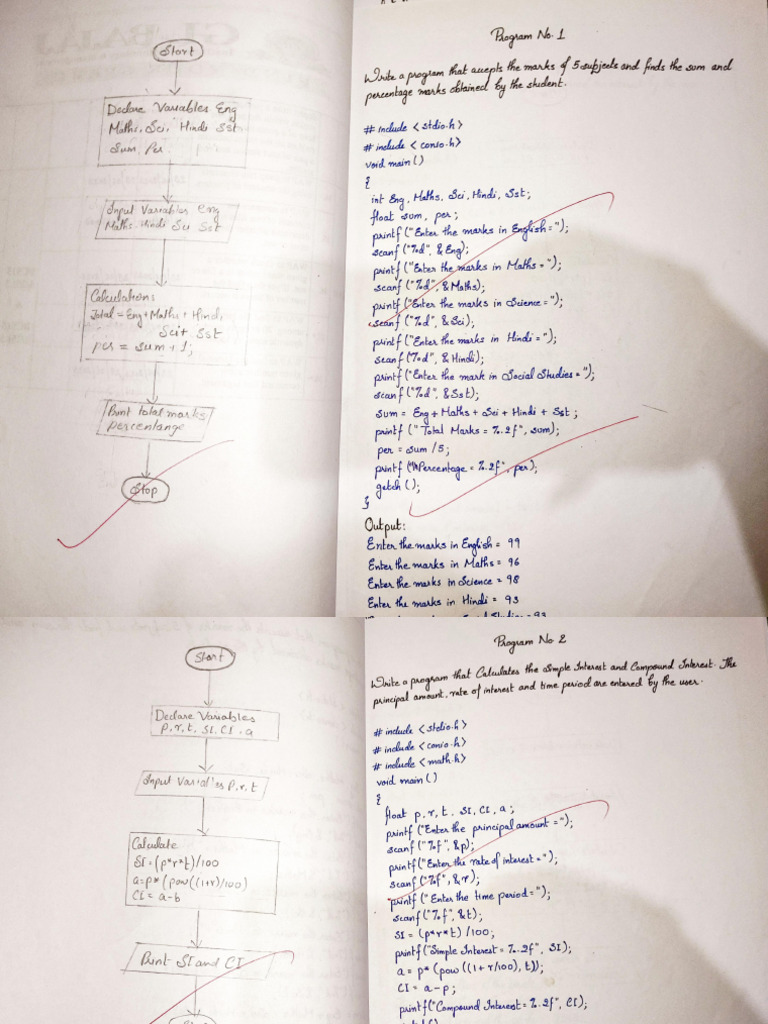 Start
Declare Variables Eng
Maths, Sci, Hindi Sst
Sum, Per
Input Variables Eng
Maths, Hindi Sci Sst
Calculations
Total = Eng + Maths + Hindi
Sci + Sst
per = sum
Print total marks
percentange
Stop
Program No. 1
Write a program that accepts the marks of 5 subjects and finds the sum and
percentage marks obtained by the student.
# include <stdio.h>
# include <conio.h>
void main ()
{
int Eng, Maths, Sci, Hindi, Sst;
float sum, per;
printf ("Enter the marks in English = ");
scanf ("%d", & Eng);
printf ("Enter the marks in Maths = ");
scanf ("%d", & Maths);
printf ("Enter the marks in Science = ");
scanf ("%d", & Sci);
printf ("Enter the marks in Hindi = ");
scanf ("%d", & Hindi);
printf ("Enter the mark in Social Studies = ");
scanf ("%d", & Sst);
sum = Eng + Maths + Sci + Hindi + Sst ;
printf (" Total Marks = %.2f", sum);
per = sum /5;
printf ("\nPercentage = %.2f", per);
getch ();
}
Output:
Enter the marks in English = 99
Enter the marks in Maths = 96
Enter the marks in Science = 98
Enter the marks in Hindi = 93
Start
Declare Variables
p, r, t, SI, CI, a
Input Variables P, r, t
Calculate
SI = (p*r*t)/100
a=p* (pow((1+r)/100)
CI = a-b
Print SI and CI
Program No 2
Write a program that Calculates the Simple Interest and Compound Interest. The
principal amount, rate of interest and time period are entered by the user.
# include <stdio.h>
# include <conio.h>
# include <math.h>
void main ()
{
float p, r, t, SI, CI, a;
printf ("Enter the principal amount = ");
scanf ("%f", &p);
printf ("Enter the rate of interest = ");
scanf ("%f", &r);
printf ("Enter the time period = ");
scanf ("%f", &t);
SI = (p*r*t) /100;
printf ("Simple Interest = %.2f", SI);
a = p* (pow ((1 + r/100), t));
CI = a - p ;
printf ("Compound Interest = %.2f", CI);